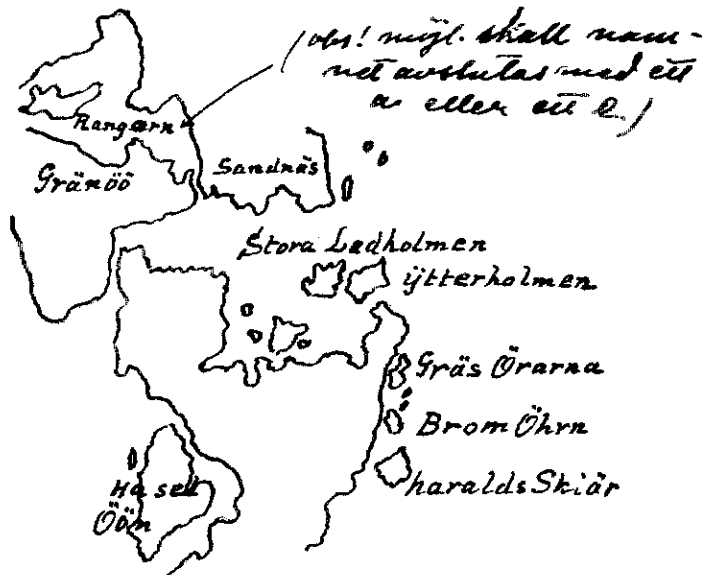 (obs! möjl. skall nam-
net avslutas med ett
a eller ett e.)
Rangarn
Gränöö
Sandnäs
Stora Ladholmen
ÿtterholmen
Gräs Örarna
Brom Öhrn
haralds Skiär
Hasel
Öön